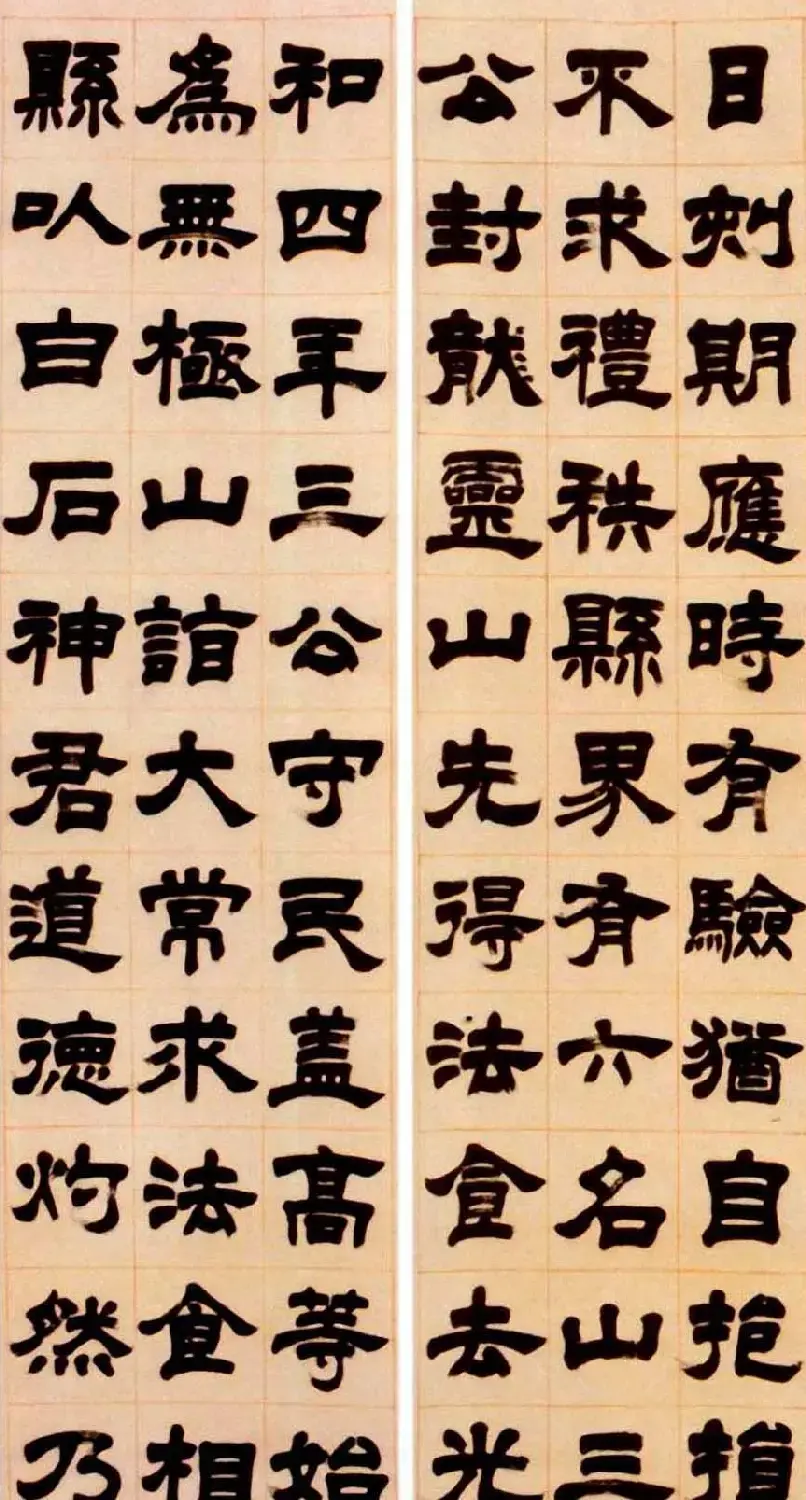 日刻期應時有驗猶自挹損
不求禮秩縣界有六名山三
公封龍靈山先得法食去光
和四年三公守民盖高等始
爲無極山詣大常求法食相
縣以白石神君道德灼然乃